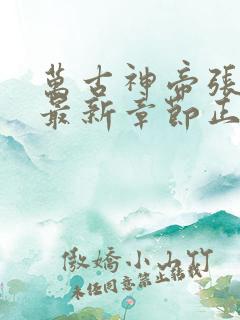 萬古神帝張
最新章節正
傲嬌小山竹
未經同意禁止轉載